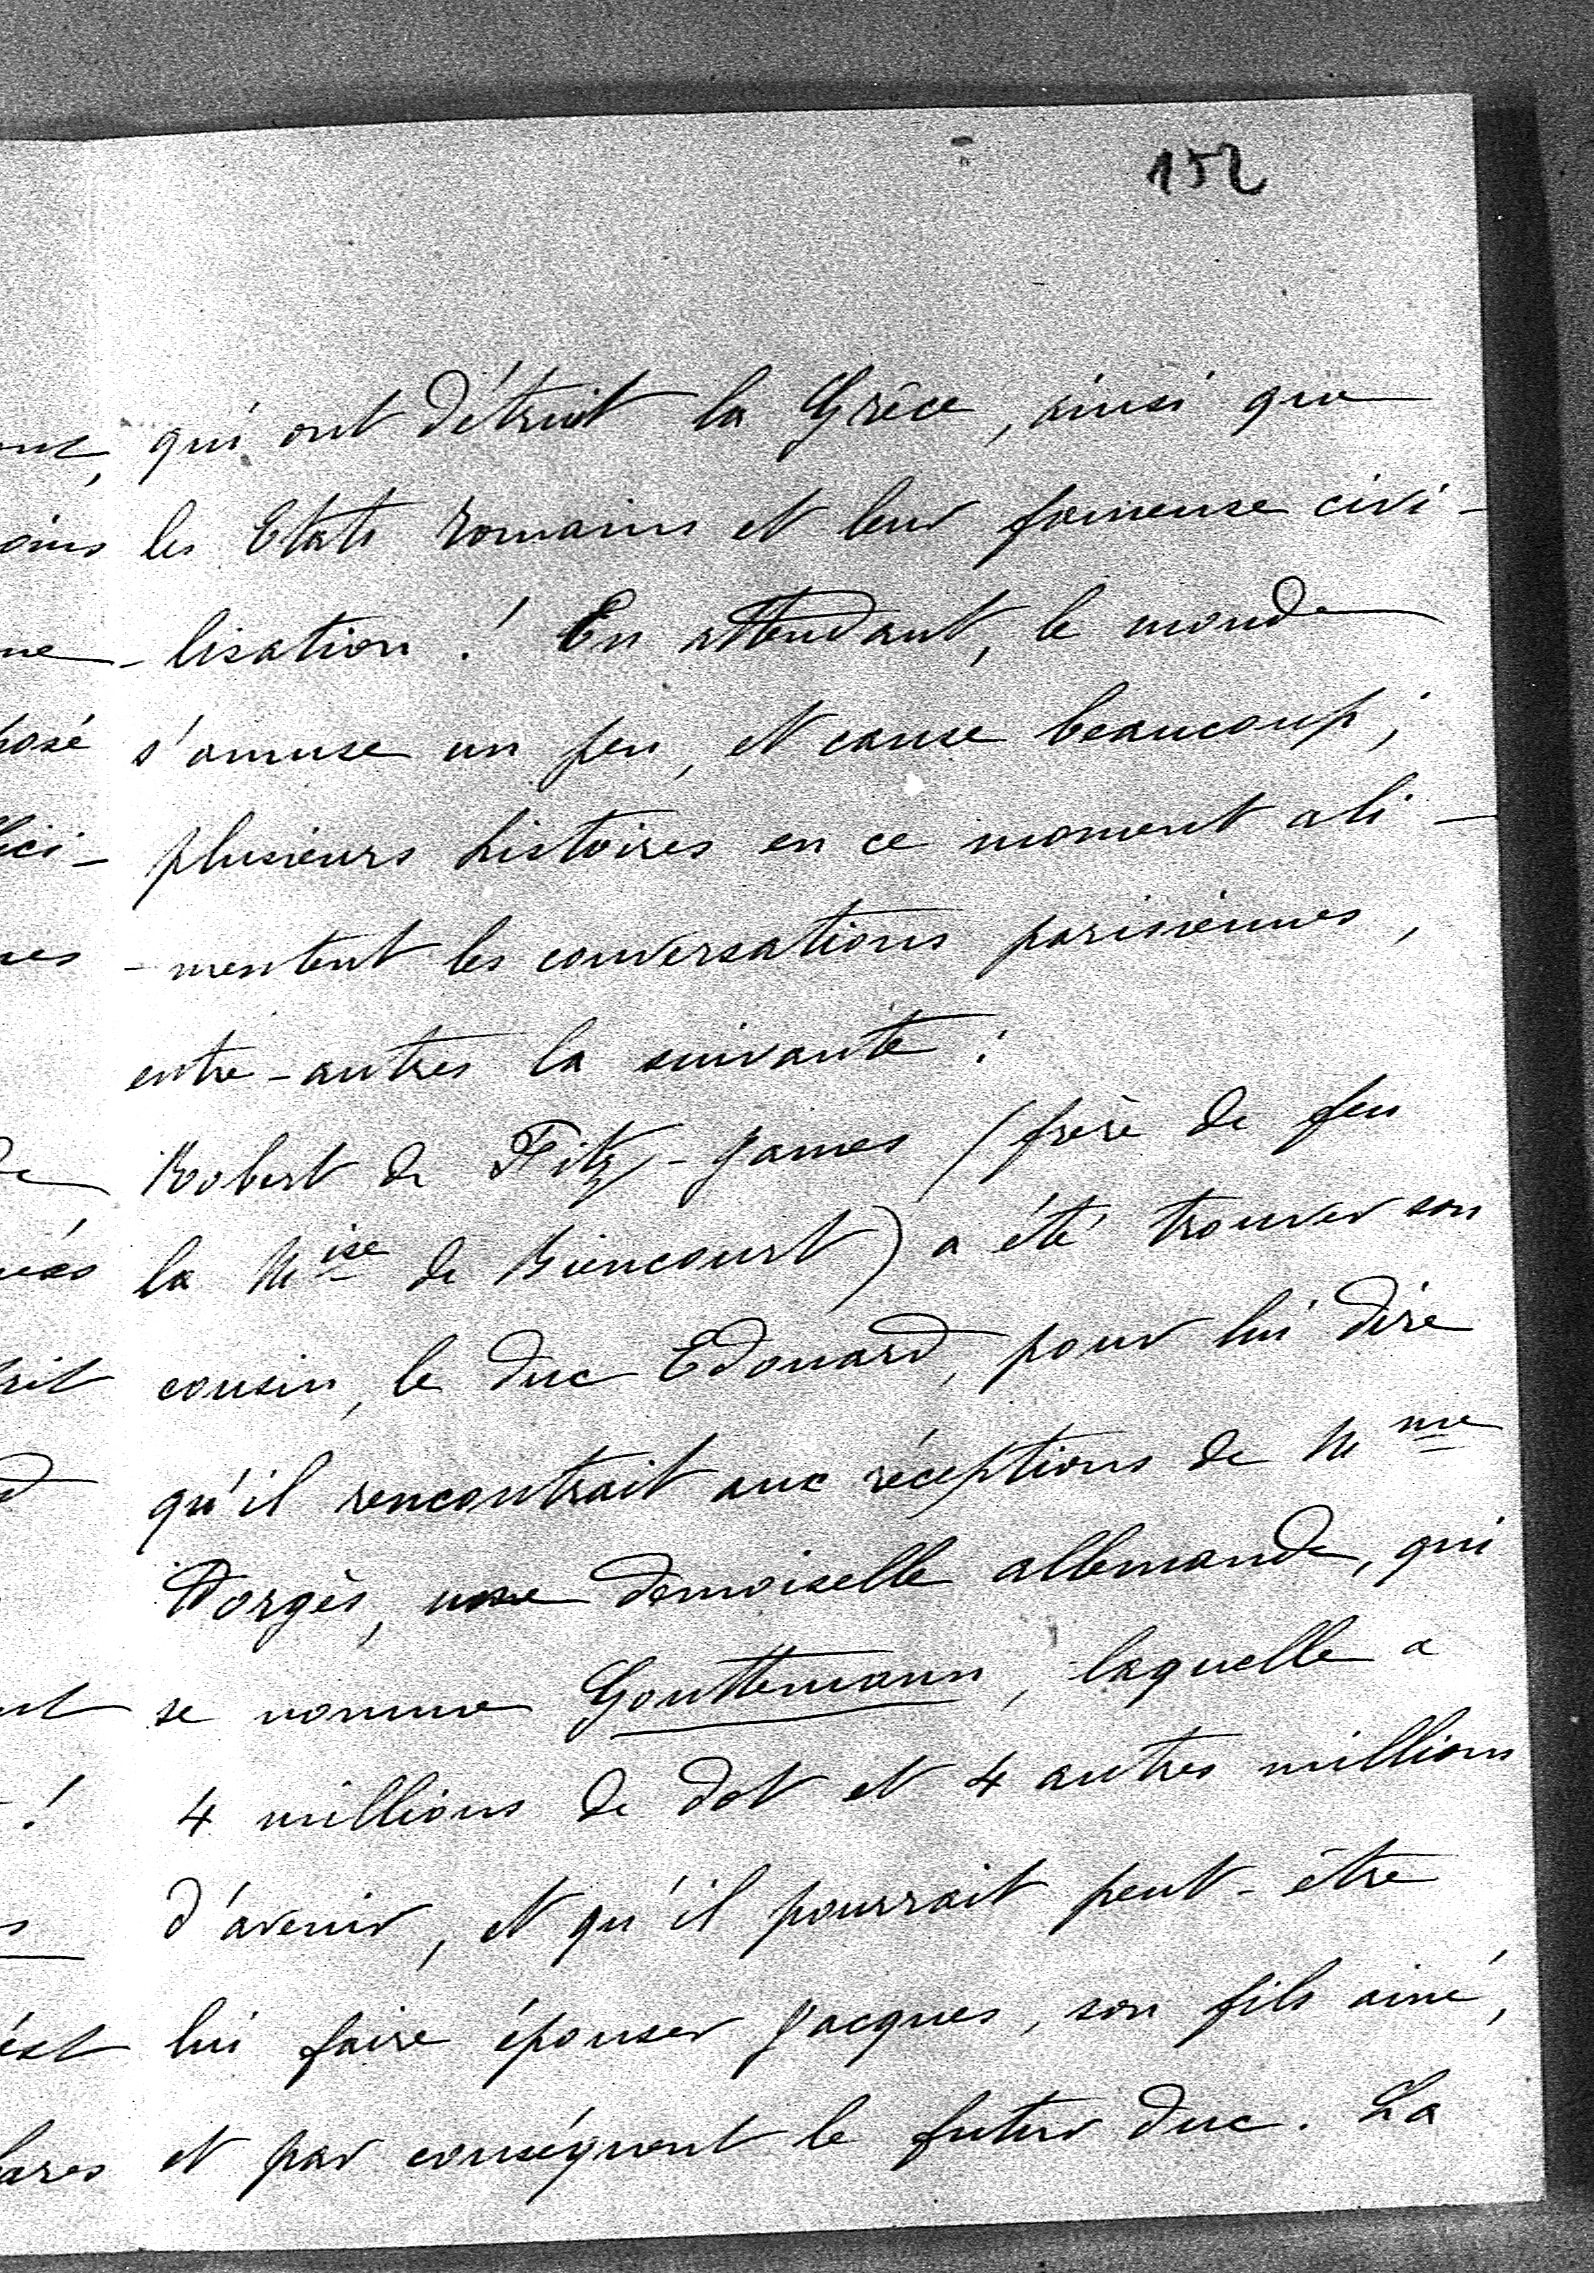 152
qui ont détruit la Grèce, ainsi que
les Etats romains et leur fameuse civi-
-lisation ! En attendant, le monde
s'amuse un peu, et cause beaucoup ;
plusieurs histoires en ce moment ali-
-mentent les conversations parisiennes,
entre-autres la suivante :
Robert de Fitz-James (frère de feu
la Mise de Biencourt) a été trouver son
cousin, le duc Edouard, pour lui dire
qu'il rencontrait aux réceptions de Mme
Porgès, une demoiselle allemande, qui
se nomme Gouttemann, laquelle a
4 millions de dot et 4 autres millions
d'avenir, et qu'il pourrait peut-être
lui faire épouser Jacques, son fils ainé,
et par conséquent le futur duc. La